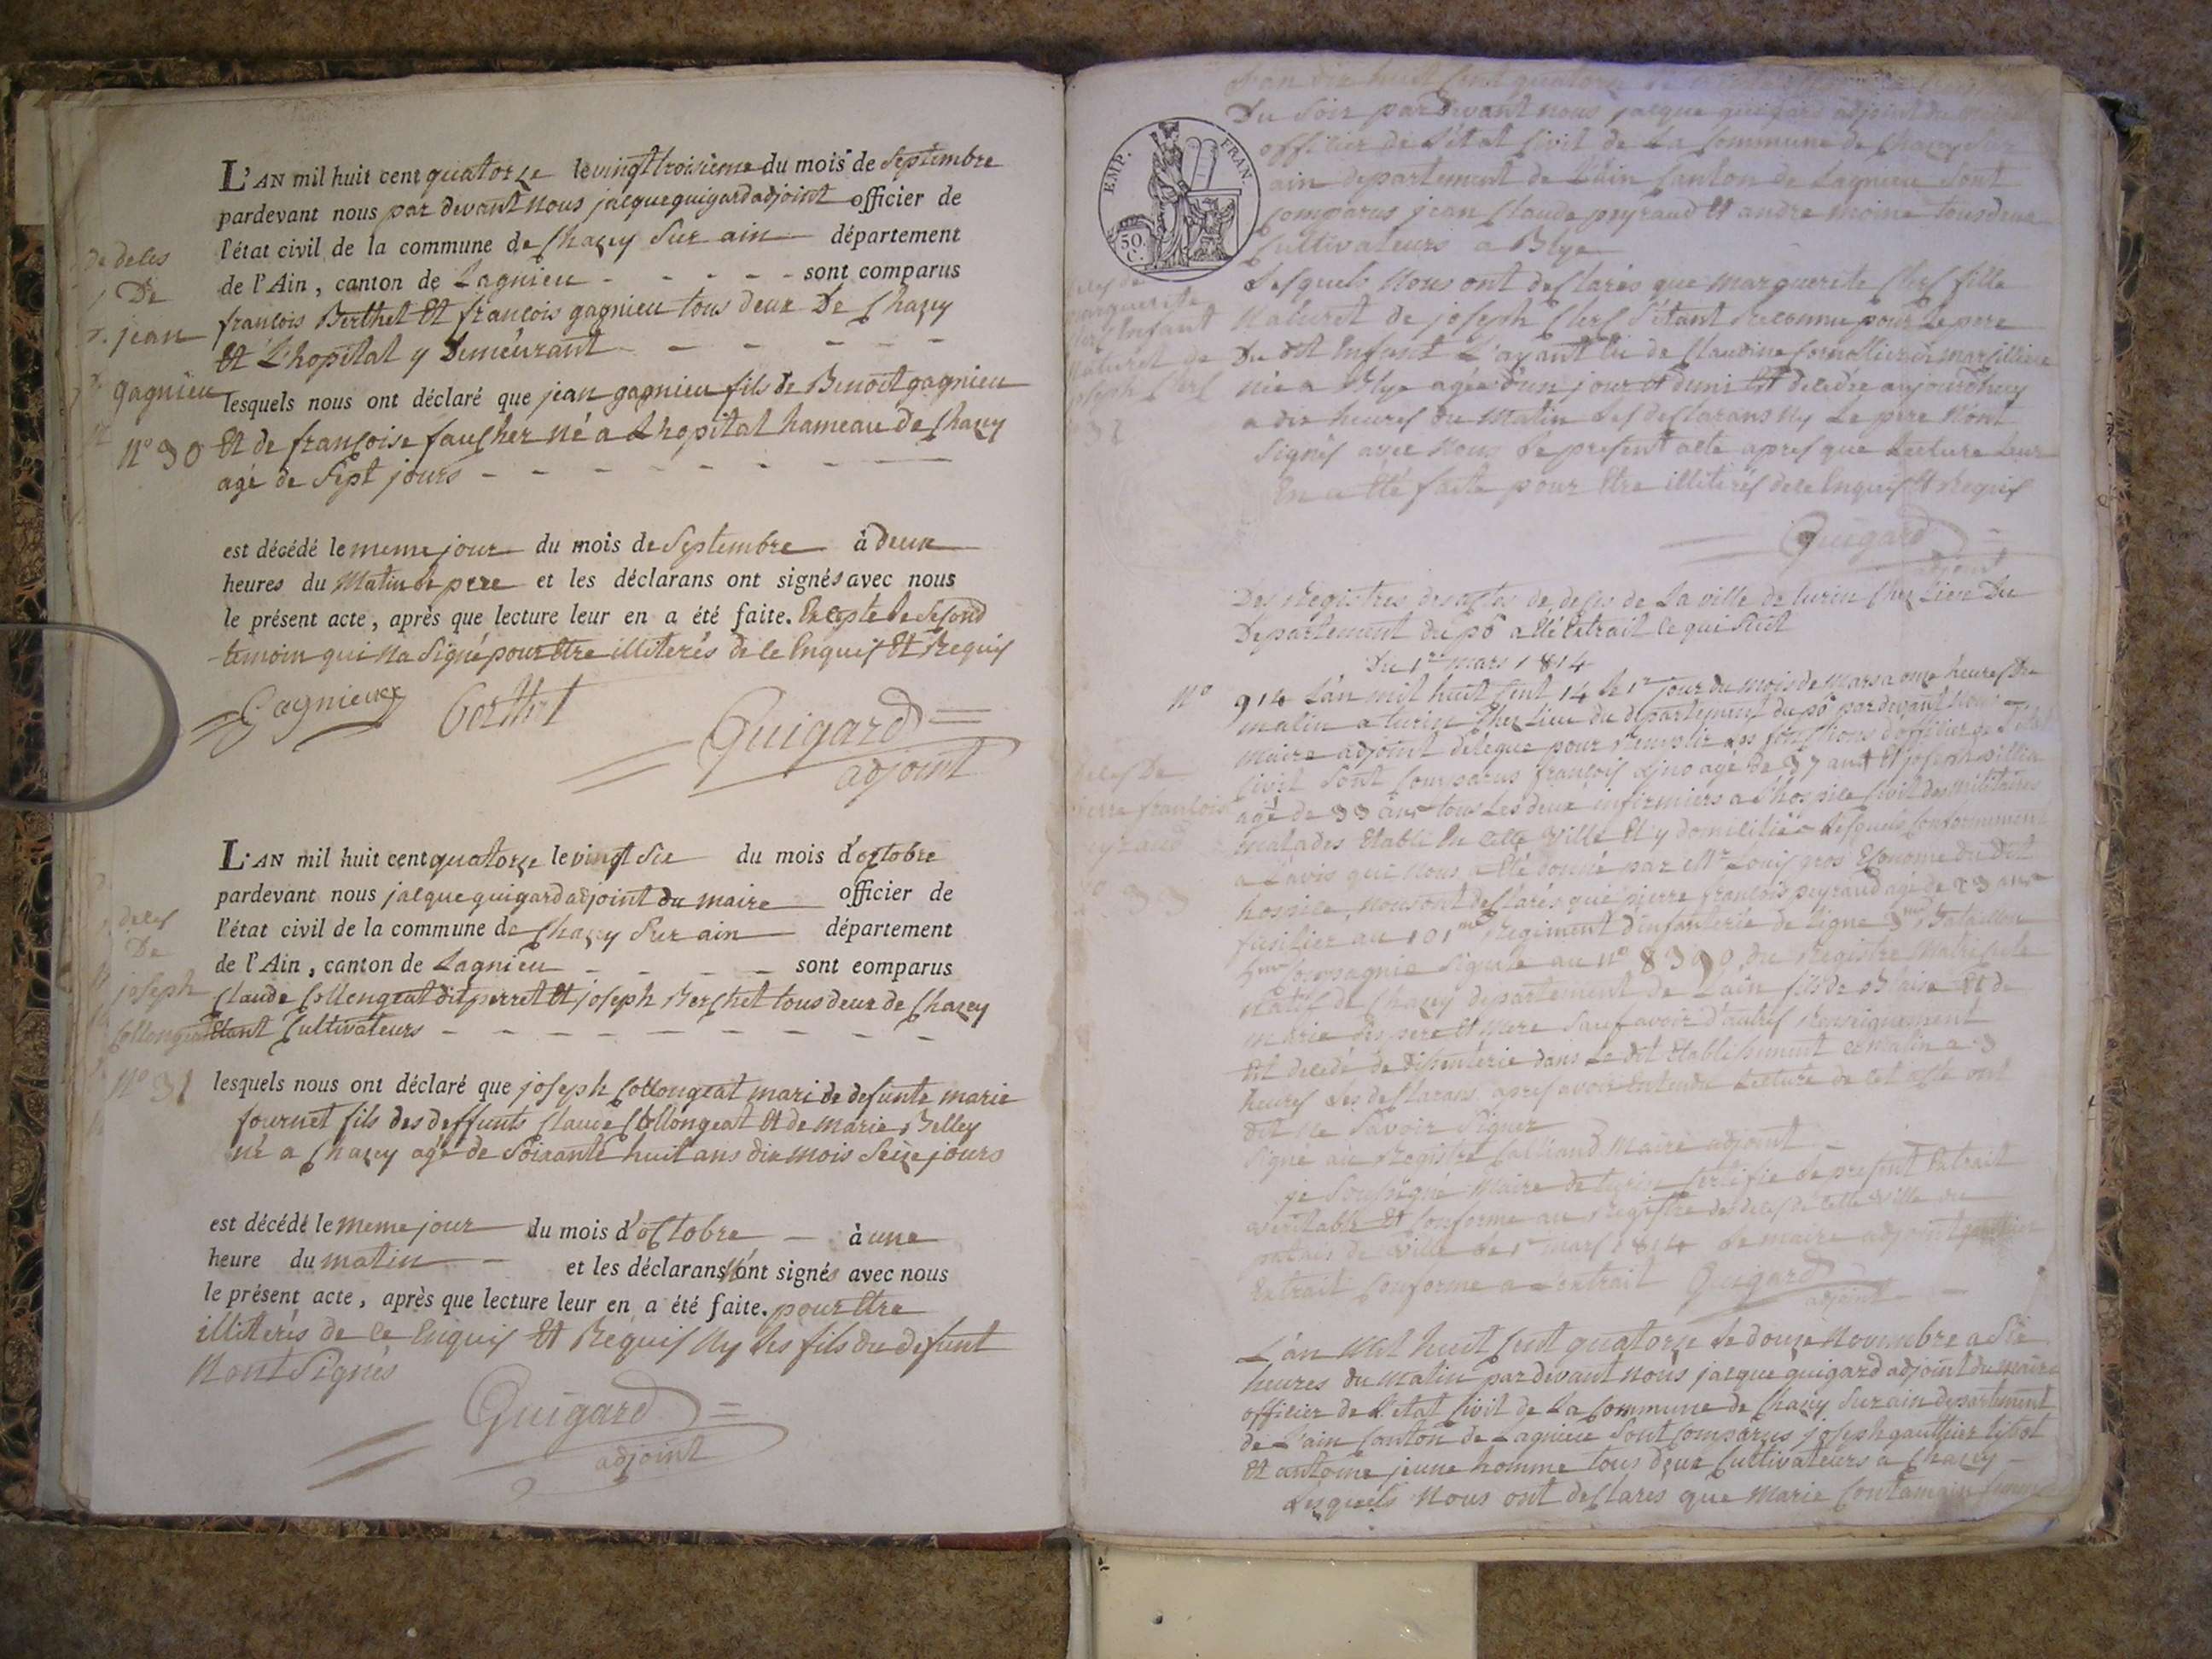 de deces
De
jean
gagnieu
N° 30
L'AN mil huit cent quatorze le vingt troisieme du mois de Septembre
pardevant nous par devant nous jacque guigard adjoint officier de
l'état civil de la commune de Chazey Sur ain département
de l'Ain, canton de Lagnieu - - - - - sont comparus
francois Berthet Et francois gagnieu tous deux De Chazey
Et L'hopital y Demeurant - - - - - -
lesquels nous ont déclaré que jean gagnieu fils de Benoit gagnieu
Et de francoise faucher né a Lhopital hameau de Chazey
agé de Sept jours - - - - - - - -
est décédé le meme jour du mois de Septembre à deux
heures du Matin le pere et les déclarans ont signés avec nous
le présent acte, après que lecture leur en a été faite. Excepte le Second
temoin qui Na Signé pour Etre illiterés de ce Enquis Et Requis
Gagnieux Berthet Guigard
adjoint
deces
De
joseph
Collongeat
N° 31
L'AN mil huit cent quatorze le vingt Six du mois d'octobre
pardevant nous jacque guigard adjoint du maire officier de
l'état civil de la commune de Chazey Sur ain département
de l'Ain, canton de Lagnieu - - - - sont comparus
Claude Collongeat dit perret Et joseph Berchet tous deux de Chazey
Etant Cultivateurs - - - - - - - - -
lesquels nous ont déclaré que joseph Collongeat mari de defunte marie
fournet fils des deffunts Claude Collongeat Et de Marie Belley
né a Chazey agé de Soixante huit ans dix mois Seize jours
est décédé le meme jour du mois d'octobre - à une
heure du matin - et les déclarans N'ont signés avec nous
le présent acte, après que lecture leur en a été faite. pour Etre
illiterés de ce Enquis Et Requis Ny Les fils du defunt
Nont Signés
Guigard
adjoint
L'an mil huit Cent quatorze
Du Soir par Devant nous jacque guigard adjoint du maire
officier de L'état Civil de La Commune de Chazey Sur
ain departement de L'ain Canton de Lagnieu Sont
Comparus jean Claude peyraud Et andre moine tous deux
Cultivateurs a Blye
EMP. FRAN.
50 C.
marguerite
Clerc Enfant
Naturel de
joseph Clerc
32
Lesquels Nous ont declarés que marguerite Clerc fille
Naturel de joseph Clerc S'étant Reconnu pour le pere
Du dit Enfant L'ayant Eu de Claudine
née a Blye agée d'un jour et demi Est decedée aujourdhuy
a dix heures du Matin Les declarans Ny Le pere Nont
Signés avec Nous Le present acte apres que Lecture Leur
En a Eté faite pour Etre illiterés de ce Enquis Et Requis
Guigard
adjoint
Des Registres des actes de deces de La ville de turin Chef Lieu Du
Departement du pô a Eté Extrait Ce qui Suit
Du 1er mars 1814
N° 914 L'an mil huit Cent 14 le 1er jour du mois de Mars a onze heures du
matin a turin Chef Lieu du departement du pô par devant Nous
maire adjoint délégué pour Remplir les fonctions d'officier de l'Etat
Civil Sont Comparus françois agé de 37 ans Et joseph
agé de 33 ans tous Les deux infirmiers a L'hospice Civil des Militaires
malades Etabli En Cette Ville Et y domiciliés Lesquels Conformement
a L'avis qui Nous a Eté donné par Mr Louis gros Econome du Dit
hospice, nous ont declarés que pierre françois peyraud agé de 23 ans
fusilier au 101me Regiment d'infanterie de Ligne 3me Bataillon
Compagnie Signalé au N° 8390 du Registre Matricule
Natif de Chazey departement de L'ain fils de Blaise Et de
marie Ses pere Et Mere Sauf avoir d'autres Renseignement
Est decedé de Disenterie dans Le dit Etablissement Ce matin a 3
heures Les declarans apres avoir Entendu Lecture de Cet acte ont
dit Ne Savoir Signer
Signé au Registre Calliaud Maire adjoint
Deces De
pierre francois
peyraud
33
je Soussigné Maire de turin Certifie Le present Extrait
veritable Et Conforme au Registre des deces de Cette Ville au
palais de Ville Le 1er mars 1814 Le maire adjoint
Extrait Conforme a Lextrait Guigard
adjoint
L'an Mil huit Cent quatorze Le douze Novembre a Six
heures du Matin par devant Nous jacque guigard adjoint du maire
officier de L'etat Civil de La Commune de Chazey Sur ain departement
de L'ain Canton de Lagnieu Sont Comparus joseph gauthier
Et antoine jeune homme tous deux Cultivateurs a Chazey -
Lesquels Nous ont declarés que Marie Contamain femme